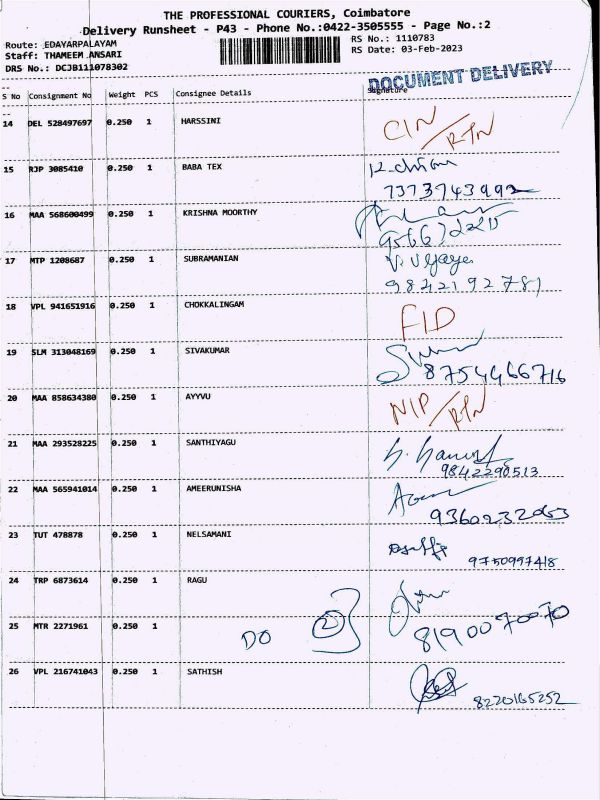 THE PROFESSIONAL COURIERS, Coimbatore
Delivery Runsheet - P43 - Phone No.:0422-3505555 - Page No.:2
Route: EDAYARPALAYAM
RS No.: 1110783
Staff: THAMEEM ANSARI
RS Date: 03-Feb-2023
DRS No.: DCJB111078302
DOCUMENT DELIVERY
S No Consignment No Weight PCS Consignee Details Signature
14 DEL 528497697 0.250 1 HARSSINI CIN/RTN
15 RJP 3085410 0.250 1 BABA TEX
7373743992
16 MAA 568600499 0.250 1 KRISHNA MOORTHY
17 MTP 1208687 0.250 1 SUBRAMANIAN
9842192781
18 VPL 941651916 0.250 1 CHOKKALINGAM FID
19 SLM 313048169 0.250 1 SIVAKUMAR
8754466716
20 MAA 858634380 0.250 1 AYYVU NIP/RTN
21 MAA 293528225 0.250 1 SANTHIYAGU
9842290513
22 MAA 565941014 0.250 1 AMEERUNISHA
23 TUT 478878 0.250 1 NELSAMANI
9750997418
24 TRP 6873614 0.250 1 RAGU
25 MTR 2271961 0.250 1 DO
8190070070
26 VPL 216741043 0.250 1 SATHISH
8220165252